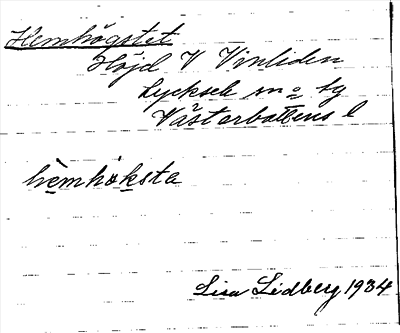 Hemhögstet
Höjd V Vinliden
Lycksele sn o tg
Västerbottens l
hèmhøksta
Lisa Lidberg 1934